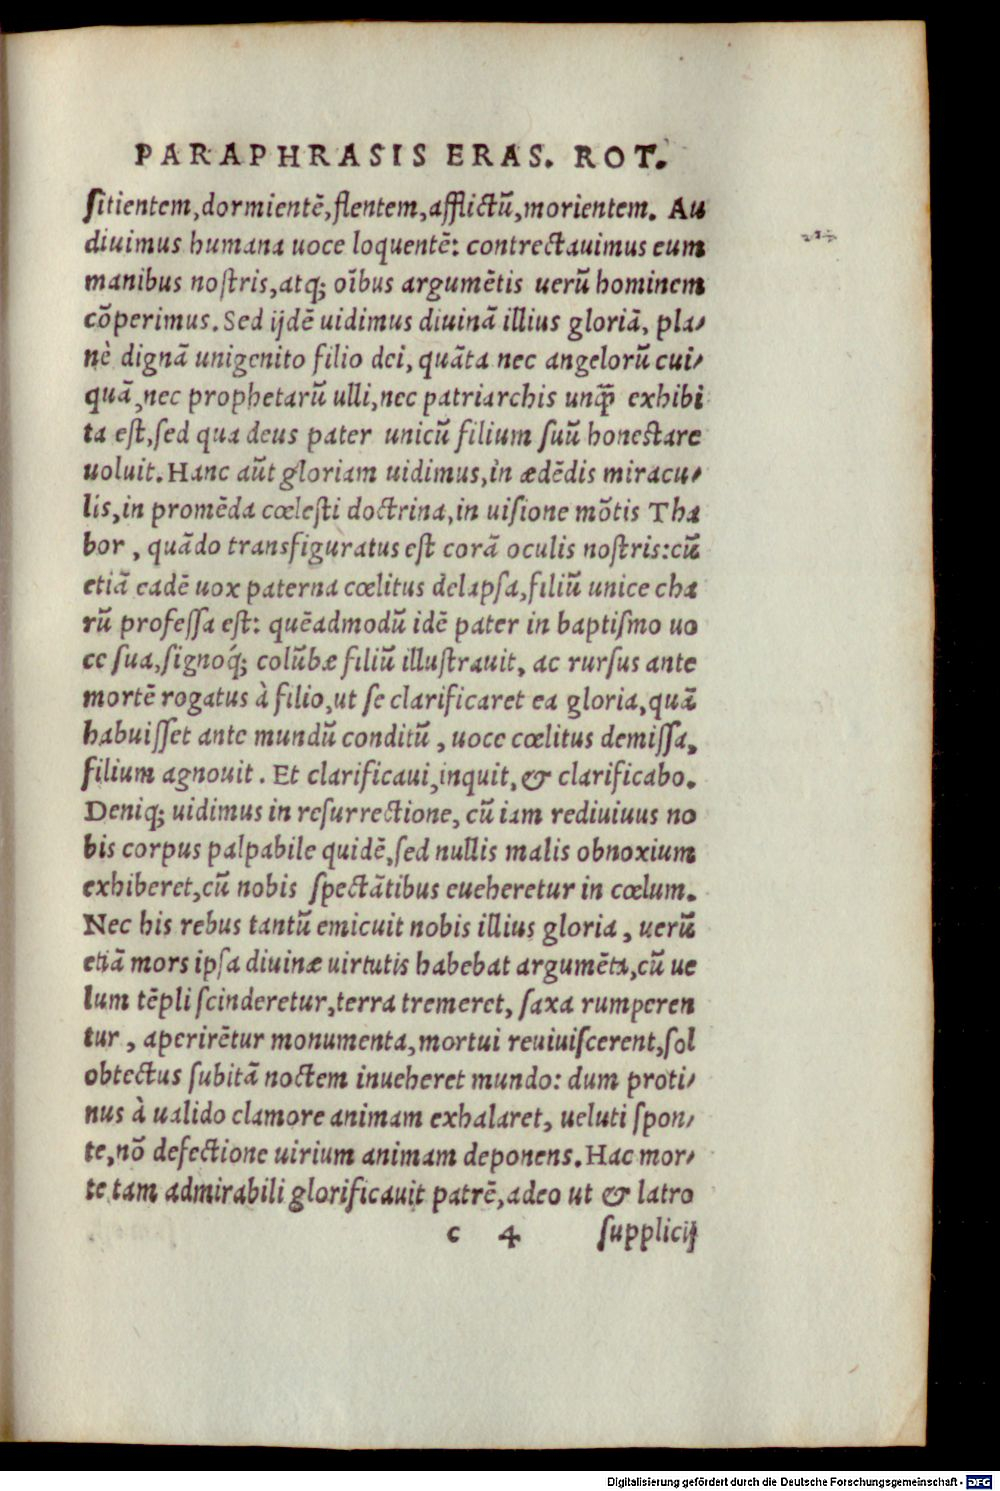 PARAPHRASIS ERAS. ROT.
ſitientem,dormientē,flentem,afflictū,morientem. Au
diuimus humana uoce loquentē: contrectauimus eum
manibus noſtris,atq; oībus argumētis uerū hominem
cōperimus. Sed ijdē uidimus diuinā illius gloriā, pla⸗
nè dignā unigenito filio dei, quāta nec angelorū cui⸗
quā,nec prophetarū ulli,nec patriarchis unq̄ exhibi
ta eſt,ſed qua deus pater unicū filium ſuū honeſtare
uoluit. Hanc aūt gloriam uidimus,in ædēdis miracu⸗
lis,in promēda cœleſti doctrina,in uiſione mōtis Tha
bor , quādo transfiguratus eſt corā oculis noſtris:cū
etiā eadē uox paterna cœlitus delapſa,filiū unice cha
rū profeſſa eſt: quēadmodū idē pater in baptiſmo uo
ce ſua,ſignoq́; colūbæ filiū illuſtrauit, ac rurſus ante
mortē rogatus à filio,ut ſe clarificaret ea gloria,quā
habuiſſet ante mundū conditū , uoce cœlitus demiſſa,
filium agnouit. Et clarificaui,inquit,& clarificabo.
Deniq; uidimus in reſurrectione, cū iam rediuiuus no
bis corpus palpabile quidē,ſed nullis malis obnoxium
exhiberet,cū nobis ſpectātibus eueheretur in cœlum.
Nec his rebus tantū emicuit nobis illius gloria , uerū
etiā mors ipſa diuinæ uirtutis habebat argumēta,cū ue
lum tēpli ſcinderetur,terra tremeret, ſaxa rumperen
tur , aperirētur monumenta,mortui reuiuiſcerent,ſol
obtectus ſubitā noctem inueheret mundo: dum proti⸗
nus à ualido clamore animam exhalaret, ueluti ſpon⸗
te,nō defectione uirium animam deponens. Hac mor⸗
te tam admirabili glorificauit patrē,adeo ut & latro
c 4 ſupplicij
Digitalisierung gefördert durch die Deutsche Forschungsgemeinschaft - DFG